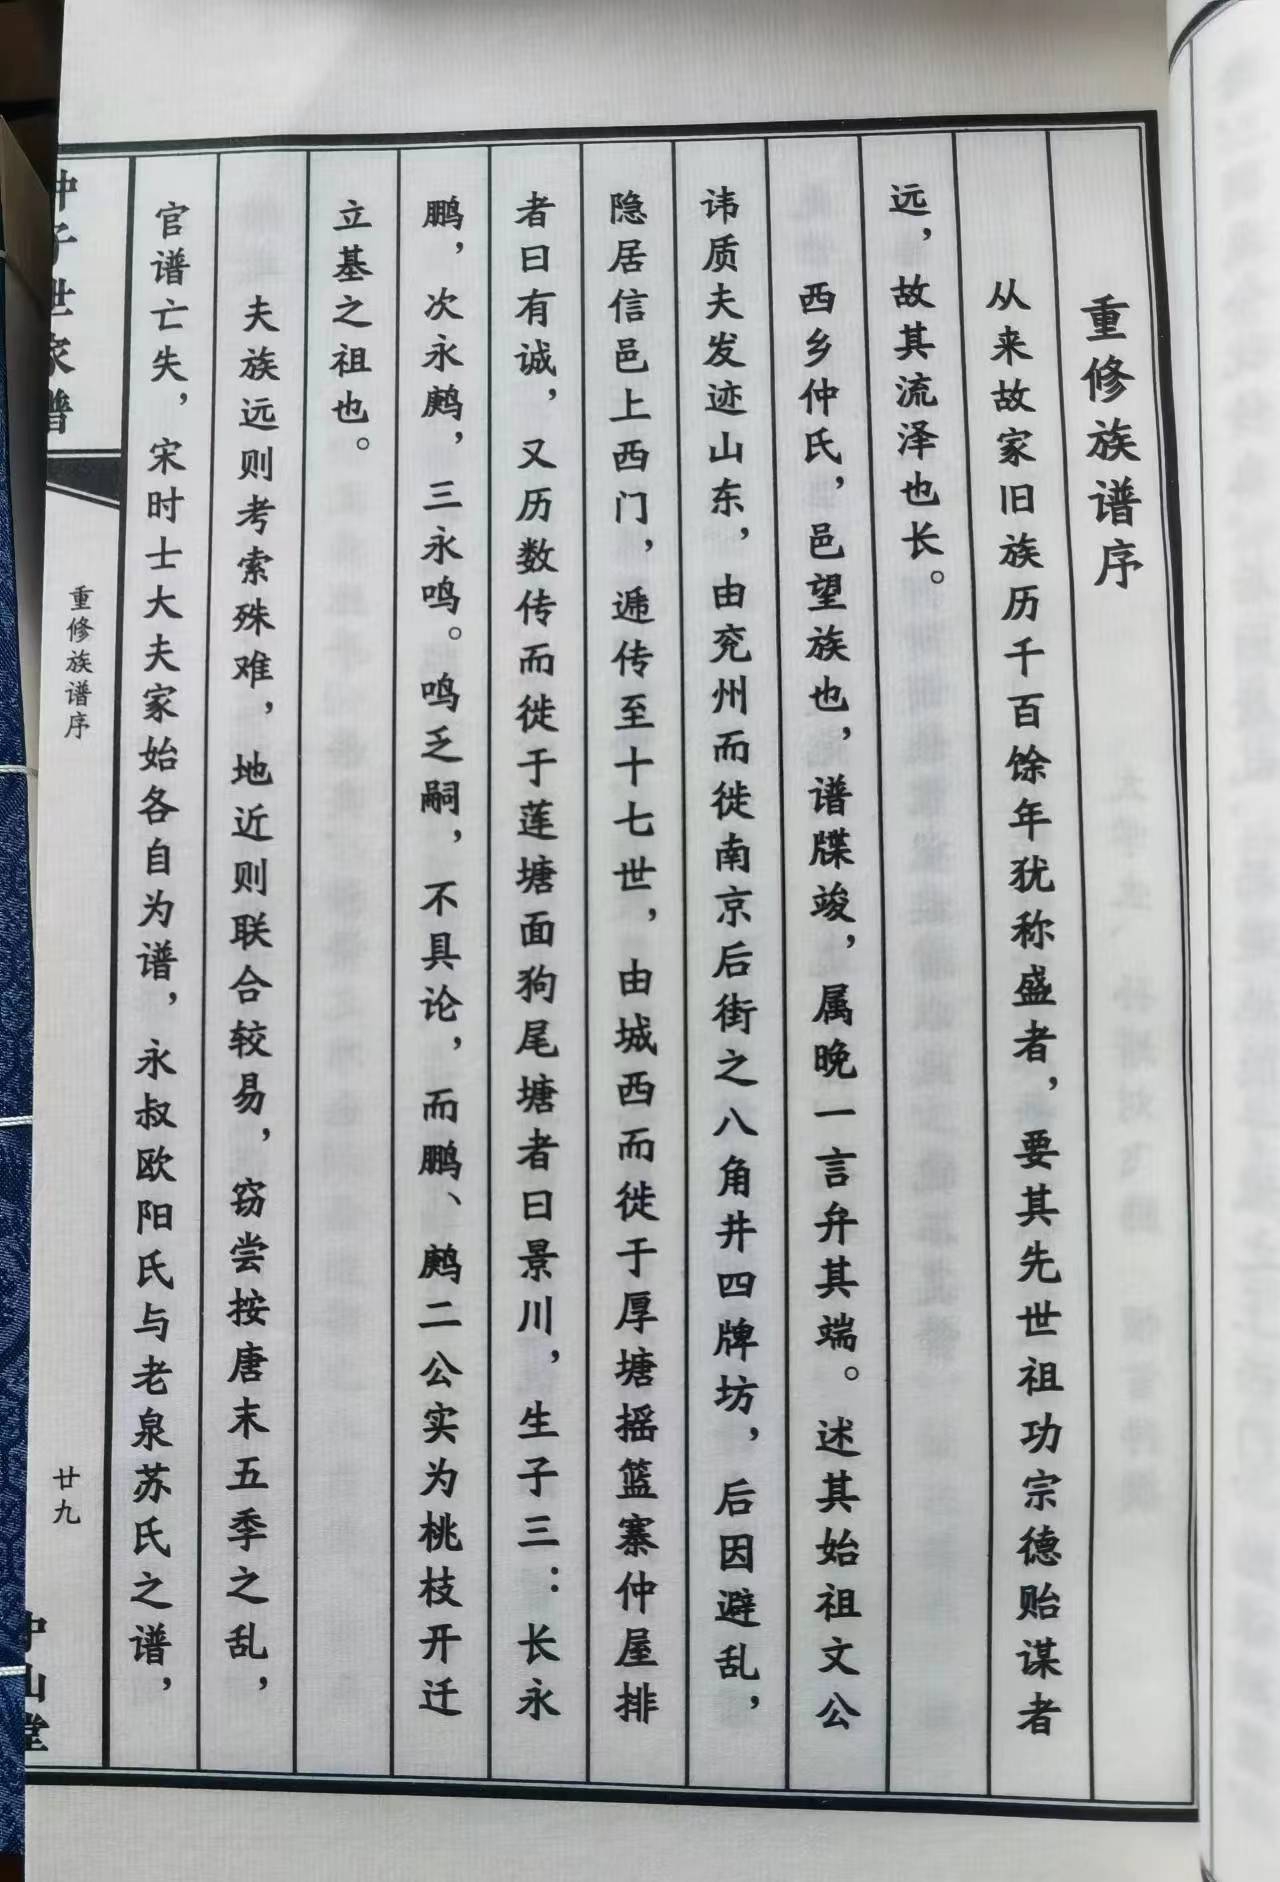 重修族谱序
从来故家旧族历千百馀年犹称盛者，要其先世祖功宗德贻谋者
远，故其流泽也长。
西乡仲氏，邑望族也，谱牒竣，属晚一言弁其端。述其始祖文公
讳质夫发迹山东，由兖州而徙南京后街之八角井四牌坊，后因避乱，
隐居信邑上西门，递传至十七世，由城西而徙于厚塘摇篮寨仲屋排
者曰有诚，又历数传而徙于莲塘面狗尾塘者曰景川，生子三：长永
鹏，次永鹧，三永鸣。鸣乏嗣，不具论，而鹏、鹧二公实为桃枝开迁
立基之祖也。
夫族远则考索殊难，地近则联合较易，窃尝按唐末五季之乱，
官谱亡失，宋时士大夫家始各自为谱，永叔欧阳氏与老泉苏氏之谱，
仲子世家谱
重修族谱序
廿九
中山堂